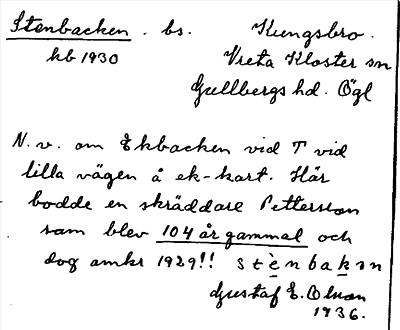 Stenbacken. bs. Kungsbro.
hb 1930 Vreta Kloster sn
Gullbergs hd. Ögl
N.v. om Ekbacken vid T vid
lilla vägen å ek-kart. Här
bodde en skräddare Pettersson
som blev 104 år gammal och
dog omkr 1929!! stènbakan
Gustaf E. Olson
1936.